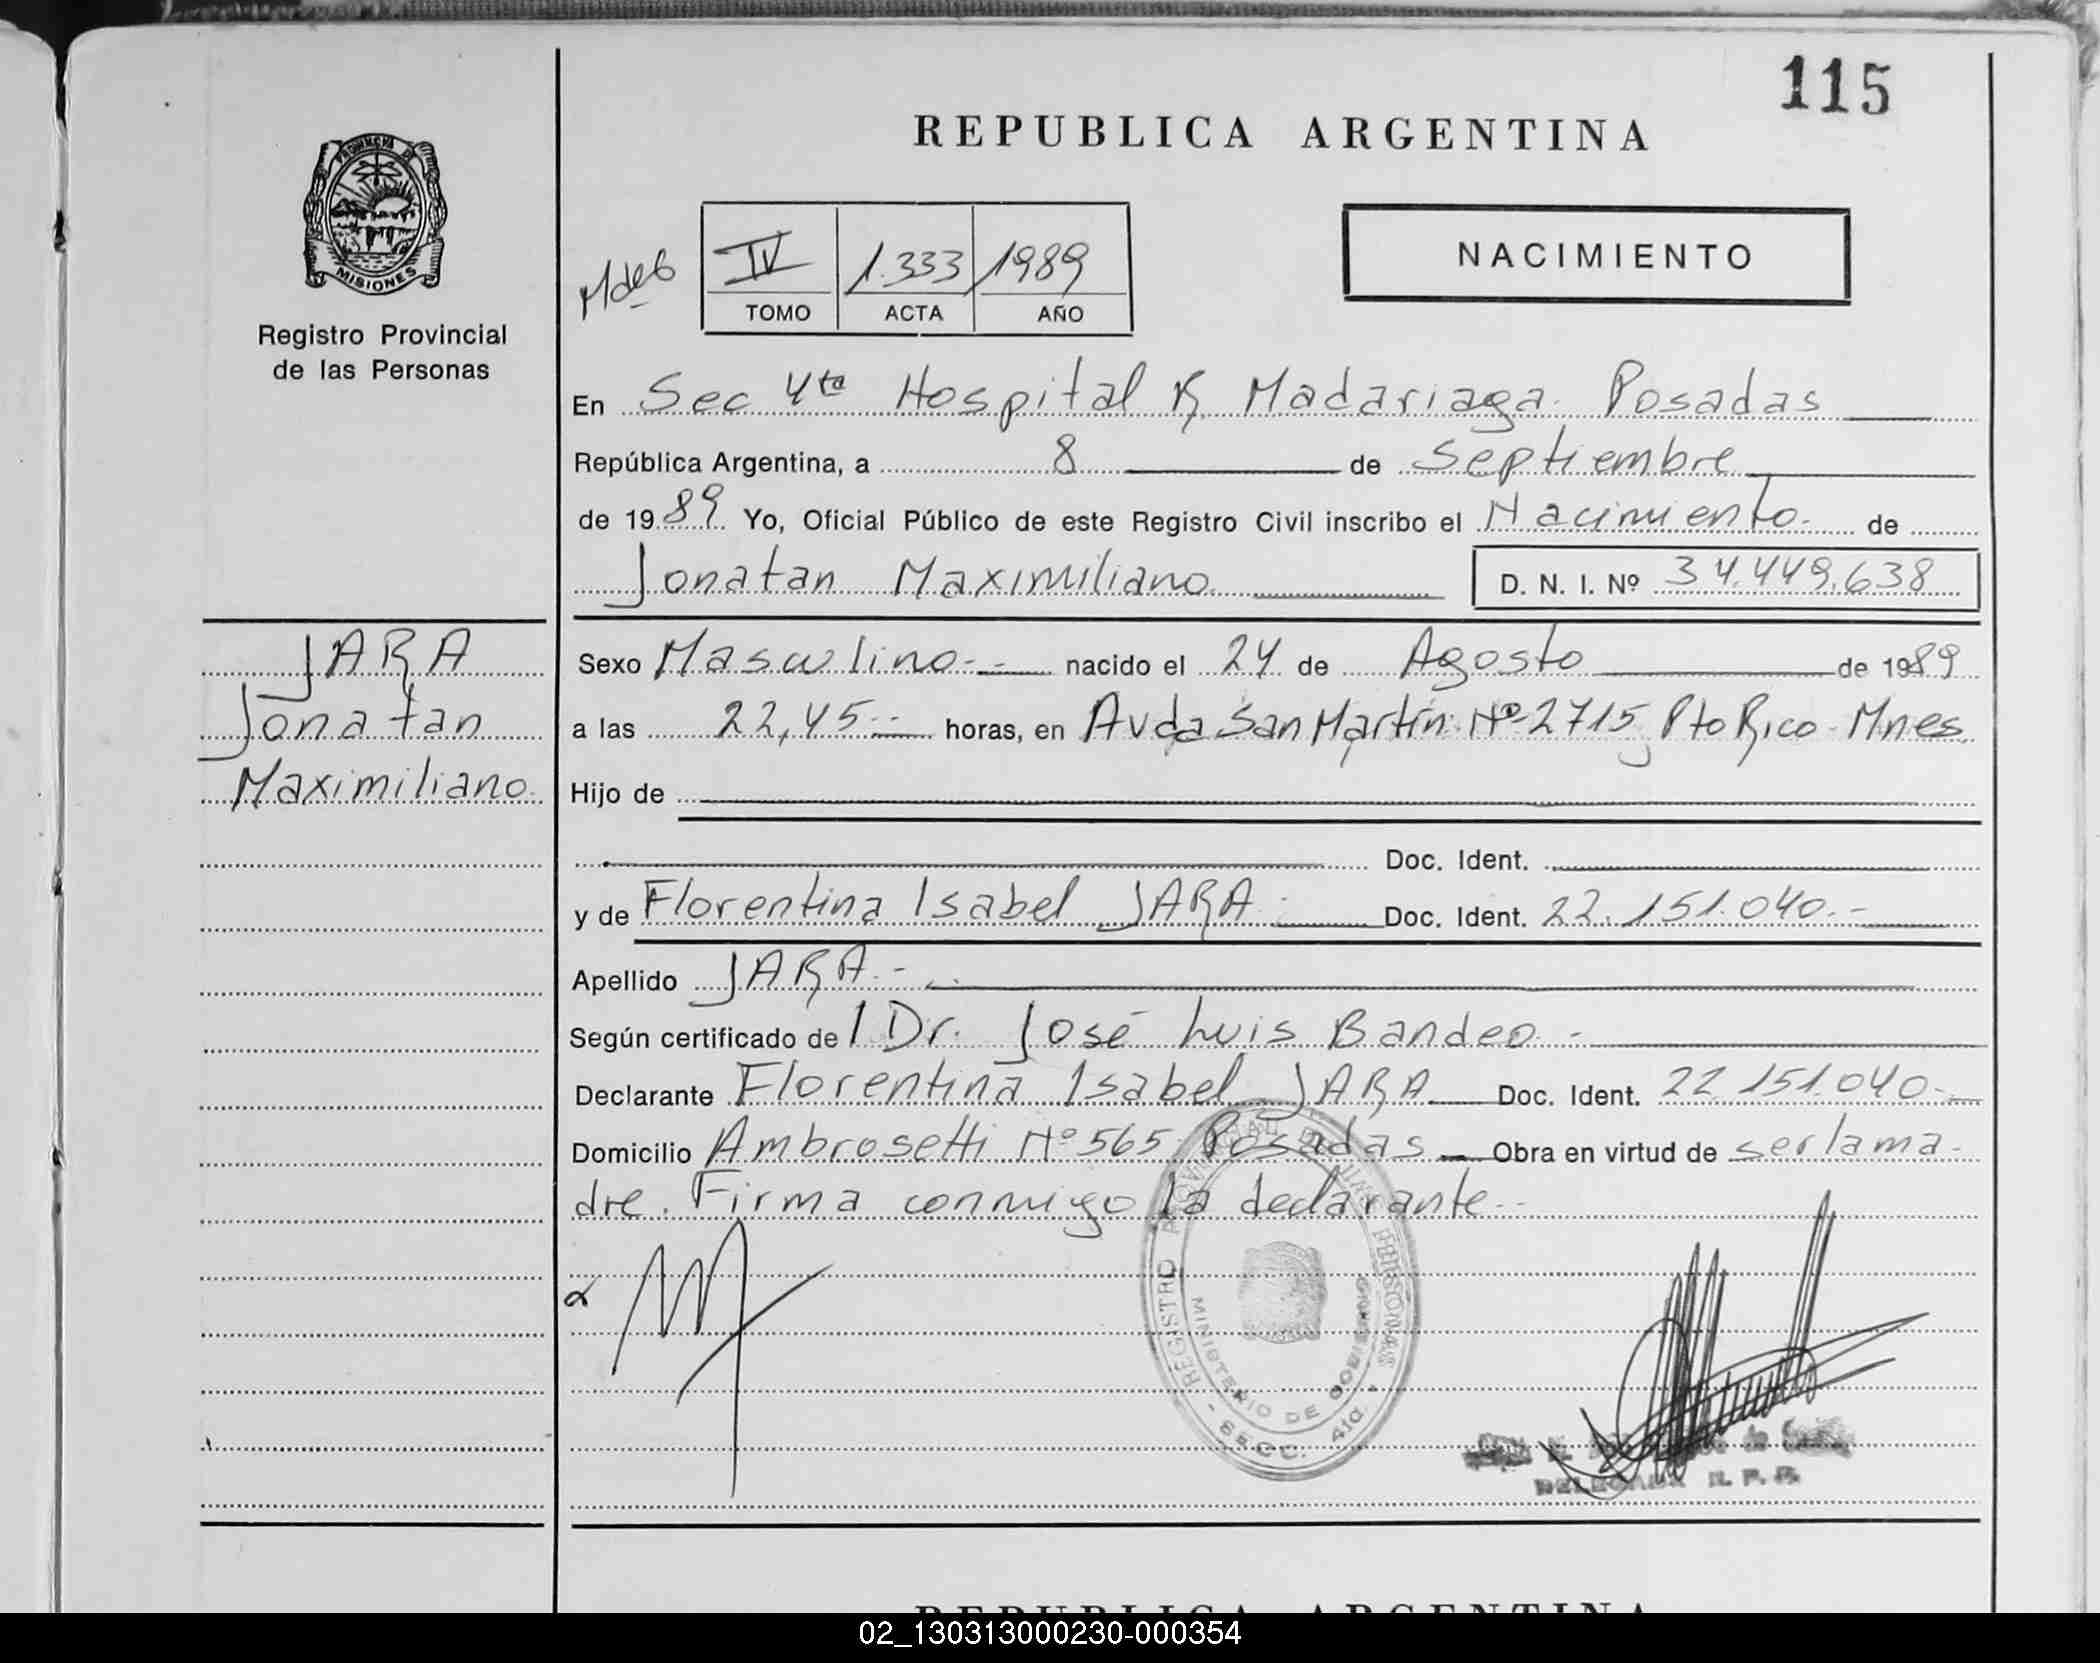 115
REPUBLICA ARGENTINA
PROVINCIA DE
MISIONES
Registro Provincial
de las Personas
NACIMIENTO
IV 1.333 1989
TOMO ACTA AÑO
En Sec 4ta Hospital R. Madariaga. Posadas
República Argentina, a 8 de Septiembre
de 1989. Yo, Oficial Público de este Registro Civil inscribo el Nacimiento. de
Jonatan Maximiliano. D. N. I. Nº 34.449.638
JARA
Jonatan
Maximiliano.
Sexo Masculino.- nacido el 24 de Agosto de 1989
a las 22,45.- horas, en Avda San Martín Nº 2715, Pto Rico - Mnes.
Hijo de
Doc. Ident.
y de Florentina Isabel JARA Doc. Ident. 22.151.040.-
Apellido JARA.-
Según certificado de l Dr. José Luis Bandeo -
Declarante Florentina Isabel JARA Doc. Ident. 22.151.040-
Domicilio Ambrosetti Nº 565. Posadas Obra en virtud de ser la ma-
dre. Firma conmigo la declarante.-
REGISTRO PROVINCIAL DE LAS PERSONAS
MINISTERIO DE GOBIERNO
- SECC. 4ta. -
DELEGADA R. P. P.
REPUBLICA ARGENTINA
02_130313000230-000354